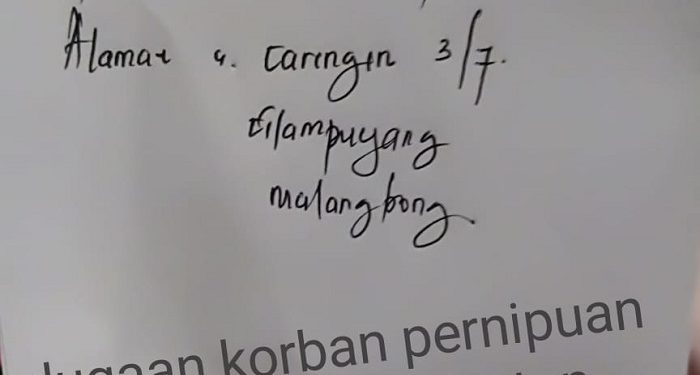 Alamat : Caringin 3/7.
Cilampuyang
Malangbong.
korban pernipuan